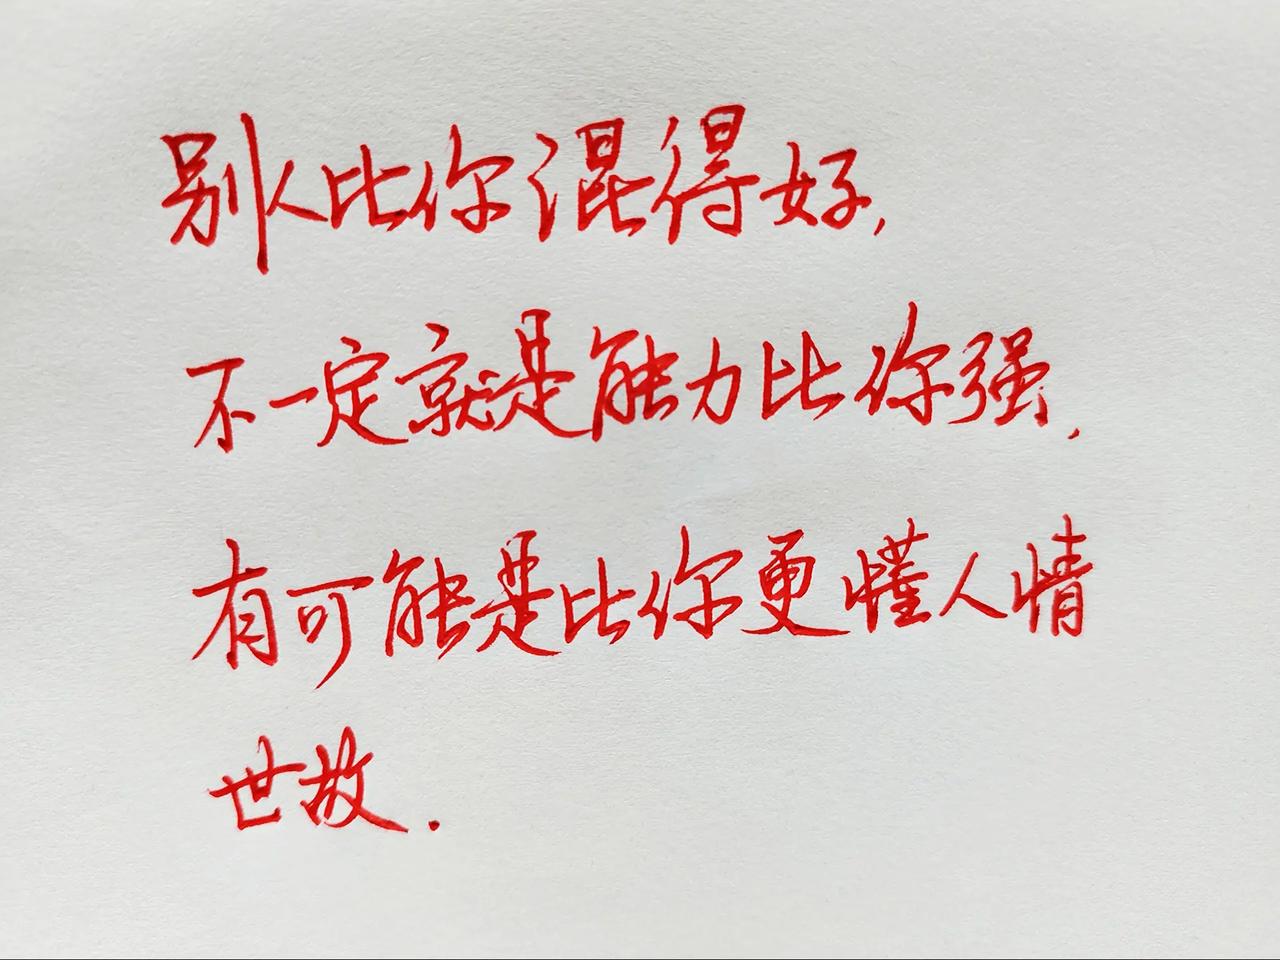 别人比你混得好,
不一定就是能力比你强,
有可能是比你更懂人情
世故.